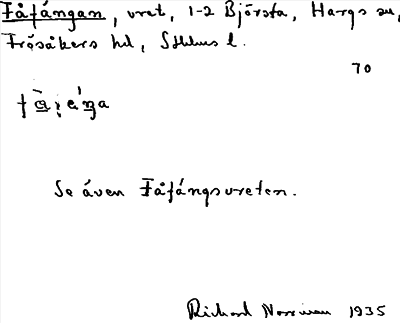 Fåfängan, vret, 1-2 Björsta, Hargs sn,
Frösåkers hd, Sthlms l.
70
Se även Fåfängsvreten.
Richard Norrman 1935